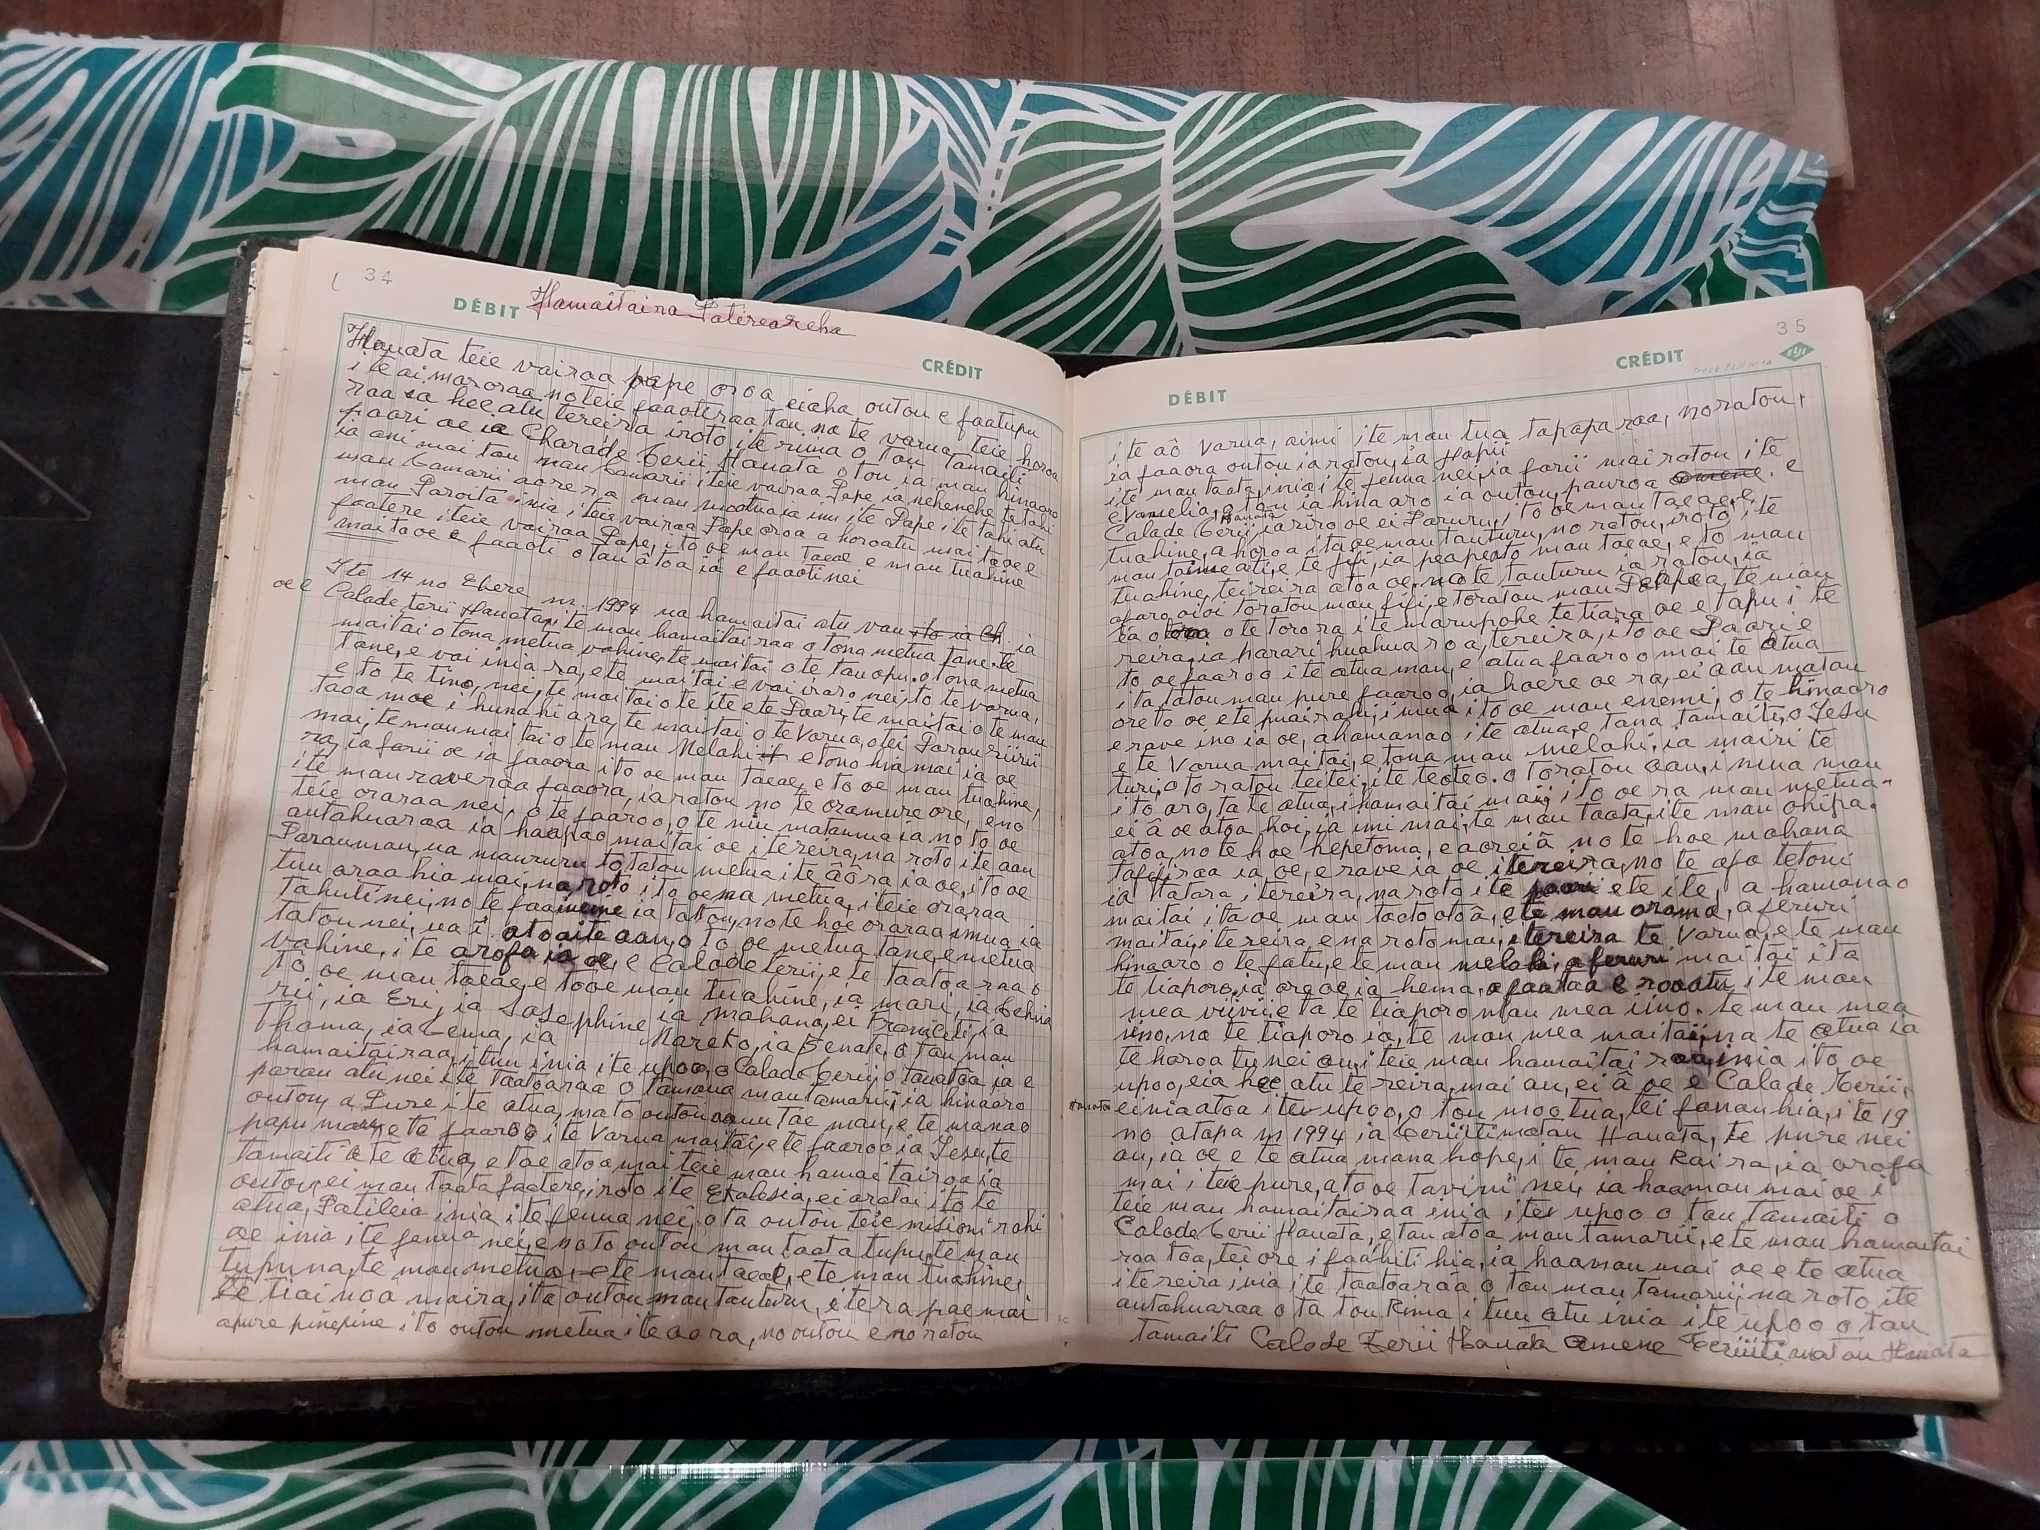 34
DÉBIT Hamaitairaa Patireareha
CRÉDIT
Hauata teie vairaa pape oroa eiaha outou e faatupu
i te ai maroraa no teie faaotiraa tau no te varua, teie horoa
raa ia hoe atu tereira iroto i te rima o tau Tamaiti
paari oe ia Charade Terii Hauata o tou ia mau hinaaro
ia ani mai tau mau tamarii i teie vairaa Pape ia nehenehe te tahi
mau tamarii aore ra mau mootua ia inu i te Pape i te tahi atu
mau Paroita inia i teie vairaa Pape oroa a horoatu mai ta oe e
faatere i teie vairaa Pape, i to oe mau taeae e mau tuahine
maitaoe e faaoti o tau âtoa ia e faaoti nei
I te 14 no Ebere m. 1994 na hamaitai atu vau ia
oe e Calade terii Hauata, i te mau hamaitairaa o tona metua tane. te
maitai o tona metua vahine, te maitai o te tauopu. o tona metua
tane, e vai inia ra, e te maitai e vai iraro nei, to te varua,
e to te tino, nei, te maitai o te ite e te Paari, te maitai o te mau
taoa moe i hunahia ra, te maitai o te Varua, o tei Parau riirii
mai, te mau maitai o te mau Melahi e tono hia mai ia oe
ra, ia farii oe ia faaora i to oe mau taeae, e to oe mau tuahine,
i te mau raveraa faaora, ia ratou no te oramure ore, e no
teie oraraa nei, o te faaroo, o te niu matamua ia no to oe
autahuaraa ia haapao maitai oe i tereira, na roto i te aau
Parau mau, ua mauruuru to tatou metua i te aôra ia oe, i to oe
tuu oraa hia mai, na roto i to oe na metua, i teie oraraa
tahuti nei, no te faaineine ia tatou, no te hoe oraraa imua ia
tatou nei, ua î atoaite aau, o to oe metua tane, e metua
vahine, i te arofa ia oe, e Calade terii, e te taatoaraa o
to oe mau taeae, e to oe mau tuahine, ia mari, ia Tehua
rii, ia Eri, ia Josephine ia Mahana, ei Franceti, ia
Thoma, ia Tema, ia Mareko, ia Benate, o tau mau
hamaitairaa, i tuu inia i te upoo, o Calade terii, o tau atoa ia e
parau atu nei i te taatoaraa o tamaua mau tamarii, ia hinaaro
outou, a Pure i te atua, ma to outou aau tae mau, e te manao
papu mau, e te faaroo i te Varua maitai, e te faaroo ia Iesu, te
tamaiti a te atua, e tae atoa mai teie mau hamaitairaa ia
outou, ei mau taata faatere, iroto i te Ekalesia, ei aratai i to te
atua, Patileia inia i te fenua nei, o ta outou teie misioni rahi
oe inia i te fenua nei, e no to outou mau taata tupu, te mau
tupuna, te mau metua, e te mau taeae, e te mau tuahine,
te tiai noa maira, i ta outou mau tauturu, i tera pae mai
apure pinepine i to outou metua i te ao ra, no outou e no ratou
35
DÉBIT
CRÉDIT
i te aô varua, aimi i te mau tua tapaparaa, no ratou,
ia faaora outou ia ratou, ia Hapii
i te mau taata, inia i te fenua nei, ia farii mai ratou i te
evanelia, o tau ia hinaaro ia outou pauroa omene. e
Calade Terii Hauata, ia riro oe ei Paruru, i to oe mau taeae, e
tuahine, a horoa i ta oe mau tauturu, no ratou, iroto i te
mau taime ati, e te fifi, ia peapea to mau taeae, e to mau
tuahine, tei reira atoa oe, no te tauturu ia ratou, ia
afaro oioi to ratou mau fifi, e to ratou mau Peapea, te mau
ia o o te torora i te marupohe te tiara oe e tapu i te
reira, ia parari huahua roa, tereira, i to oe Paari e
to oe faaroo i te atua mau, e atua faaroo mai te atua
i ta tatou mau pure faaroo, ia haere oe ra, ei aau matau
ore to oe e te puai rahi, imua i to oe mau enemi, o te hinaaro
e rave ino ia oe, a hamanao i te atua, e tana tamaiti, o Iesu
e te Varua maitai, e tona mau melahi, ia mairi te
turi, o to ratou teitei, i te teoteo. o to ratou aau, i nina mau
i to aro, ta te atua, i hamaitai mai, i to oe ra mau metua.
ei â oe atoa hoi, ia imi mai, te mau taata, i te mau ohipa.
atoa, no te hoe hepetoma, e aore iâ no te hoe mahana
tapiiraa ia oe, e rave ia oe i tereira, no te afa te toni
ia tatara i tereira, na roto i te paari e te ite, a hamanao
maitai i ta oe mau taoto atoâ, e te mau orama, a feruri
maitai, i tereira, e na roto mai, i tereira te Varua, e te mau
hinaaro o te fatu, e te mau melahi, a feruri maitai i ta
te tiaporo, ia ore oe ia hema, a faataa e roaatu, i te mau
mea viivii, e ta te tiaporo mau mea iino. te mau mea
iino, no te tiaporo ia, te mau mea maitai, na te atua ia
te horoa tu nei au, i teie mau hamaitai raa, inia i to oe
upoo, eia hoe atu te reira, mai au, ei â oe e Calade Terii,
Hauata einia atoa i te upoo, o tou mootua, tei fanau hia, i te 19
no atapa m 1994 ia Teriitimatau Hauata, te pure nei
au, ia oe e te atua mana hope, i te mau Rai ra, ia arofa
mai i teie pure, a to oe tavini nei, ia haamau mai oe i
teie mau hamaitairaa inia i te upoo o tau tamaiti o
Calade Terii Hauata, e tau atoa mau tamarii, e te mau hamaitai
raa toa, tei ore i faahiti hia, ia haamau mai oe e te atua
i te reira inia i te taatoaraa o tau mau tamarii, na roto i te
autahuaraa o ta tou Rima i tuu atu inia i te upoo o tau
tamaiti Calade Terii Hauata amene Teriitimatau Hauata